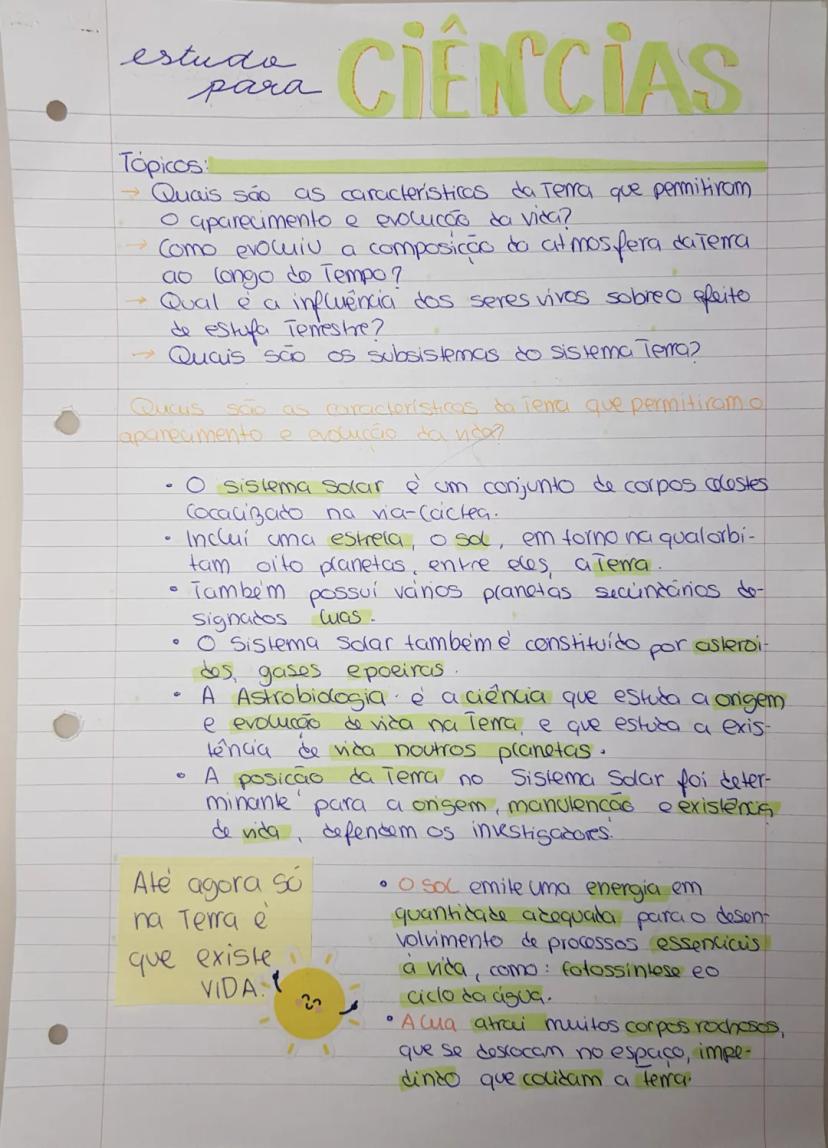 estudo
para CIÊNCIAS
Tópicos:
→ Quais são as características da Terra que permitiram
o aparecimento e evolução da vida?
→ Como evoluiu a composição da atmosfera da Terra
ao longo do Tempo?
→ Qual é a influência dos seres vivos sobre o efeito
de estufa Terrestre?
→ Quais são os subsistemas do sistema Terra?
Quais são as características da Terra que permitiram o
aparecimento e evolução da vida?
• O sistema solar é um conjunto de corpos celestes
localizado na via-láctea.
• Incluí uma estrela, o sol, em torno na qual orbi-
tam oito planetas, entre eles, a Terra.
• Também possuí vários planetas secundários de-
signados luas.
• O Sistema Solar também é constituído por asteroi-
des, gases e poeiras.
• A Astrobiologia é a ciência que estuda a origem
e evolução de vida na Terra, e que estuda a exis-
tência de vida noutros planetas.
• A posição da Terra no Sistema Solar foi deter-
minante para a origem, manutenção e existência
de vida, defendem os investigadores.
Até agora só
na Terra é
que existe
VIDA.
• O sol emite uma energia em
quantidade adequada para o desen-
volvimento de processos essenciais
à vida, como: fotossíntese e o
ciclo da água.
• A lua atrai muitos corpos rochosos,
que se deslocam no espaço, impe-
dindo que colidam a terra.